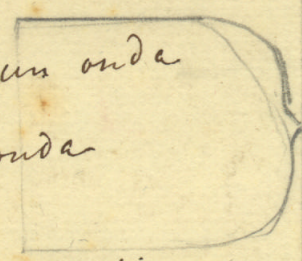 un onda
onda